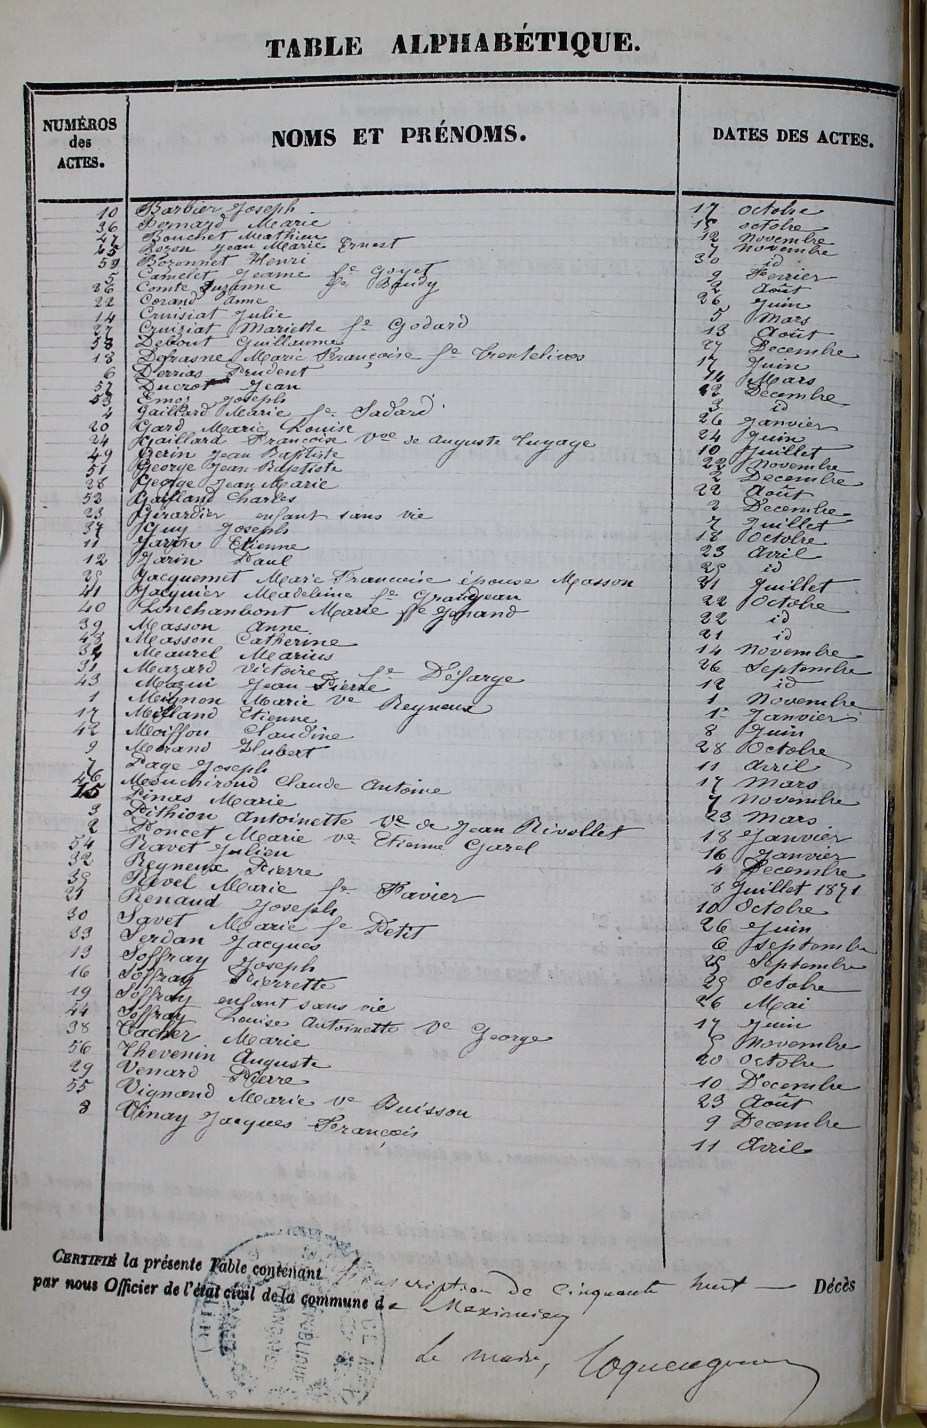 TABLE ALPHABÉTIQUE.
NUMÉROS des ACTES. NOMS ET PRÉNOMS. DATES DES ACTES.
10 Barbier Joseph 17 octobre
36 Bernard Marie 15 octobre
47 Bouchet Mathieu 12 novembre
45 Bozon Jean Marie Ernest 7 novembre
50 Bozonnet Henri 30 id
5 Camelet Jeanne fe Goyet 9 Fevrier
26 Comte Suzanne fe Baudy 2 Août
22 Corand Anne 26 Juin
14 Cruisiat Julie 5 Mars
27 Cruiziat Mariette fe Godard 13 Août
58 Debout Guillaume 27 Decembre
18 Defrasne Marie Françoise fe 17 Juin
6 Derrias Prudent 14 Mars
57 Ducrot Jean 12 Décembre
53 Joseph 3 id
4 Gaillard Marie fe Sadard 26 Janvier
20 Gard Marie Louise 24 Juin
24 Gaillard Françoise vve de Auguste Tuyage 10 Juillet
49 Jean Baptiste 22 Novembre
51 George Jean Baptiste 2 Decembre
28 George Jean Marie 22 Août
52 Galland Charles 2 Decembre
23 Girardier enfant sans vie 7 Juillet
37 Guy Joseph 18 Octobre
11 Jarin Etienne 23 Avril
12 Jarin Paul 25 id
25 Jacquemet Marie Francoise épouse Masson 21 Juillet
41 Jacquier Madeleine fe Grandjean 22 Octobre
40 Lonchanbont Marie fe Genand 22 id
39 Masson Anne 21 id
48 Masson Catherine 14 Novembre
34 Maurel Marius 26 Septembre
31 Mazard Victoire fe Défarge 12 id
43 Mazui Jean Pierre 1 Novembre
1 Meignon Marie ve Reyneux 1er Janvier
17 Milland Etienne 8 Juin
42 Moiffon Claudine 28 Octobre
9 Morand Hubert 11 Avril
7 Page Joseph 17 Mars
46 Claude Antoine 7 Novembre
15 Pinas Marie 23 Mars
3 Pithion Antoinette ve de Jean Rivollet 18 Janvier
2 Poncet Marie ve Etienne Garel 16 Janvier
54 Ravet Julien 4 Decembre
32 Reyneux Pierre 8 Juillet 1871
35 Revel Marie fe Favier 10 Octobre
21 Renaud Joseph 26 Juin
30 Savet Marie fe Petit 6 Septembre
33 Serdan Jacques 25 Septembre
13 Soffray Joseph 29 Octobre
16 Soffray Pierrette 26 Mai
19 Soffray enfant sans vie 17 Juin
44 Soffray Louise Antoinette Ve George 5 Novembre
38 Vacher Marie 20 Octobre
56 Thevenin Auguste 10 Decembre
29 Venard Pierre 23 Août
55 Vignand Marie ve Buisson 9 Decembre
8 Vinay Jacques François 11 Avril
CERTIFIÉ la présente Table contenant inscription de cinquante huit Décès
par nous Officier de l'état civil de la commune de Meximieux
Le maire,